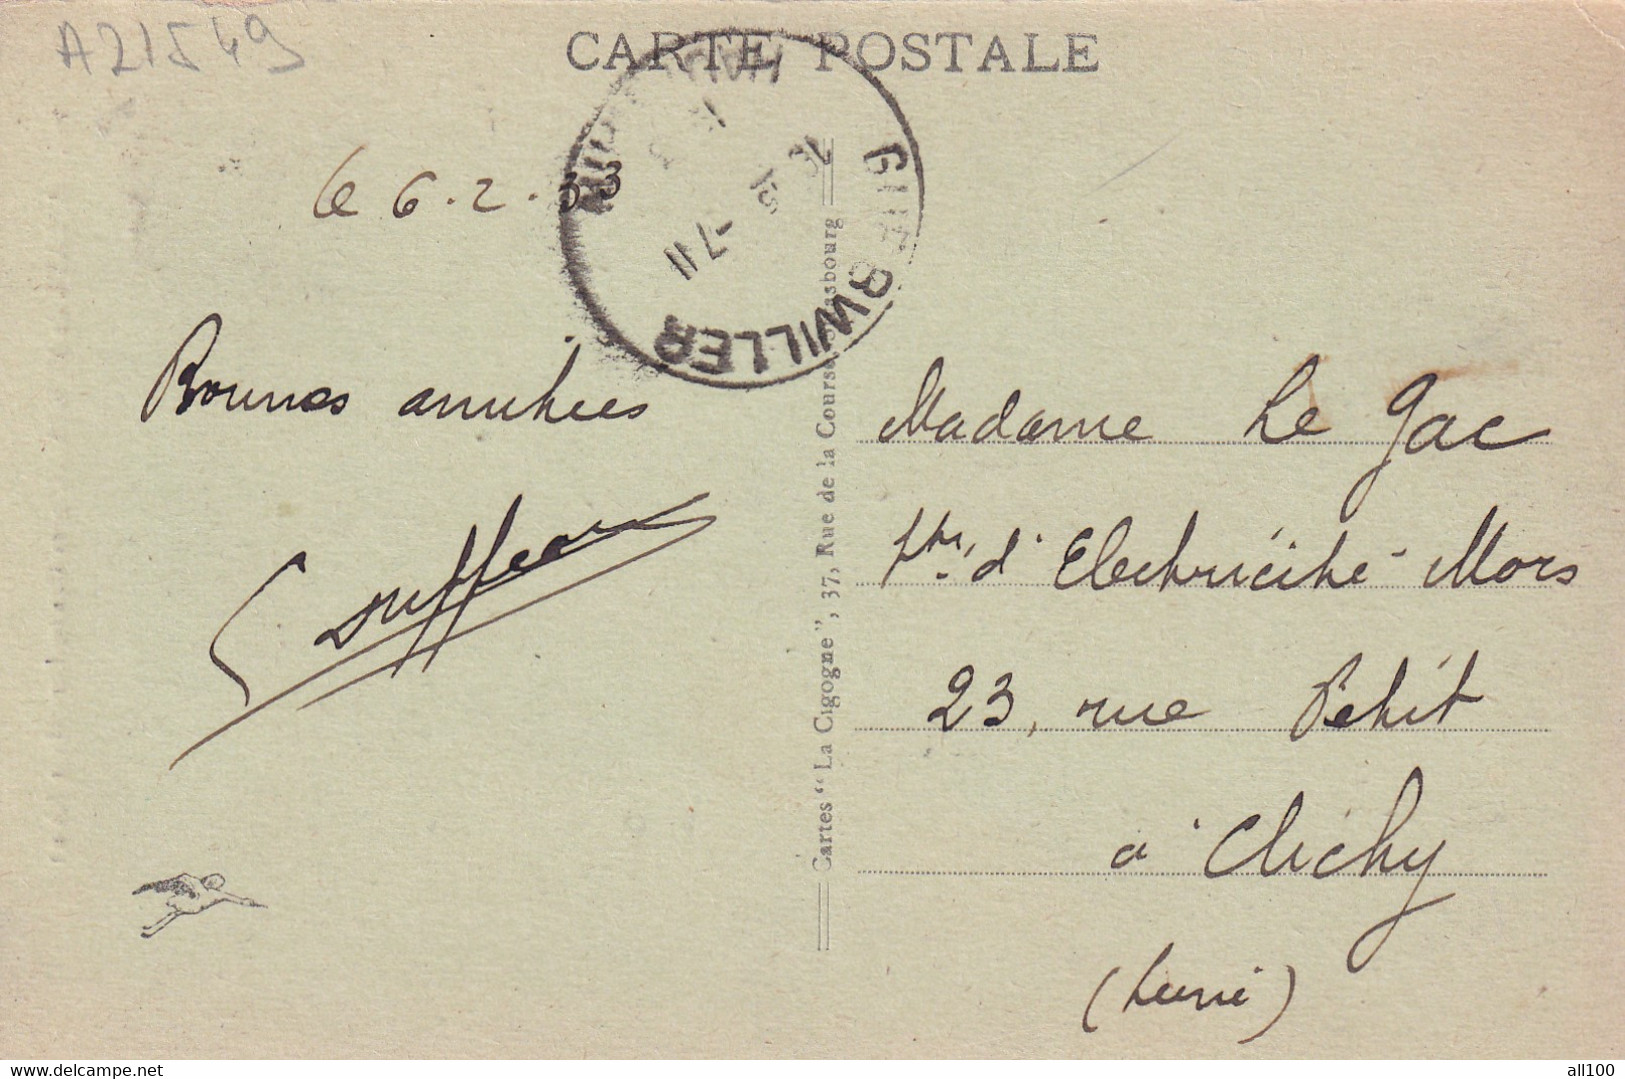 A21549
CARTE POSTALE
GUEBWILLER
-7 II
le 6.2.33
Bonnes amitiés
Duffeau
Cartes "La Cigogne", 37, Rue de la Course, Strasbourg
Madame Le Gac
d'Electricité Mors
23, rue Petit
à Clichy
(Seine)
www.delcampe.net
all100